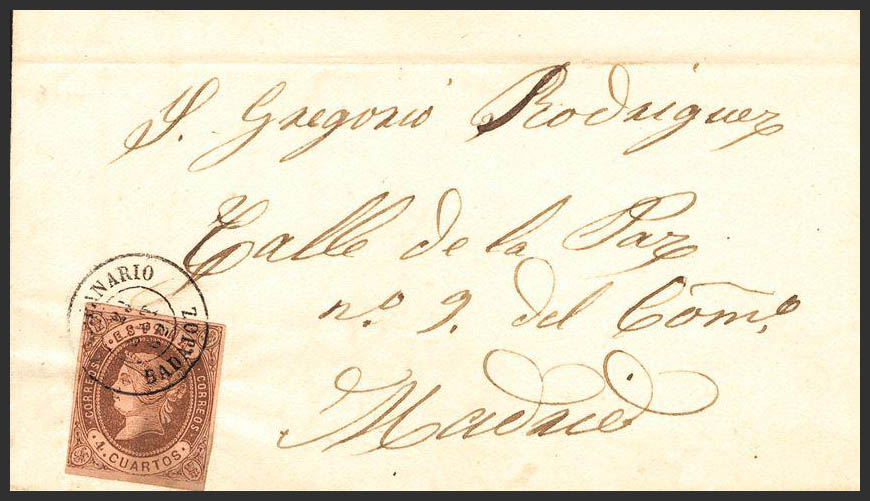 S. Gregorio Rodriguez
Calle de la Paz
n.o 9. del Com.o
Madrid
BADAJOZ
ESPA
CORREOS
CORREOS
4 CUARTOS